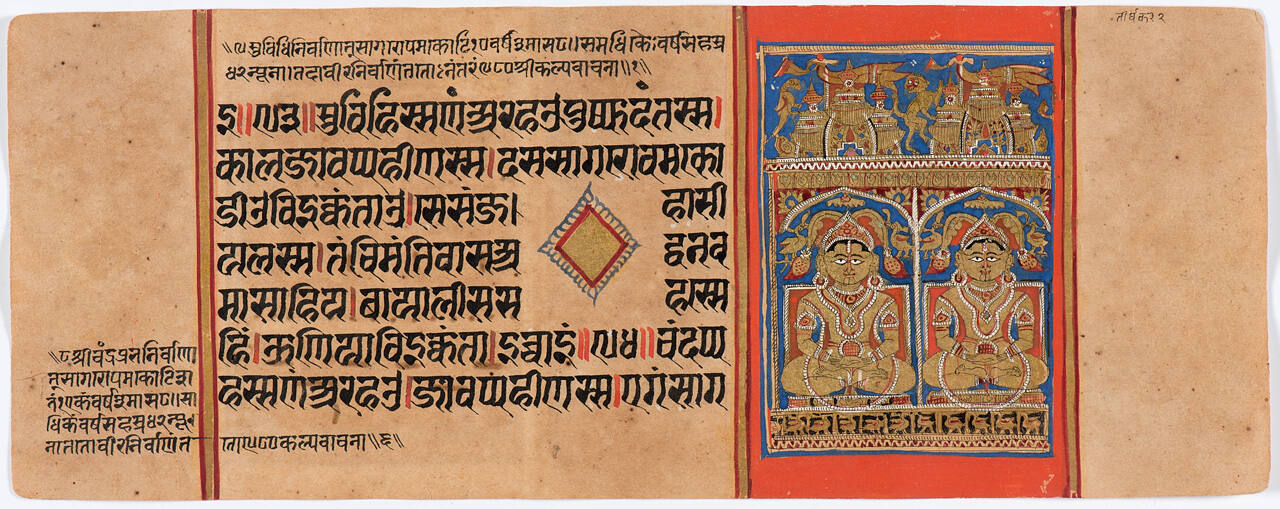 तीर्थंकर २
॥९सुविधिनिर्वाणात्सागरोपमकोटि१०वर्ष३मास८॥समधिकैःवर्षसहस्र
४२न्यूना।तदावीरनिर्वाणंततोऽनंतरं९८०श्रीकल्पवाचना॥९॥
इ॥९३॥सुविहिस्सणंअरहओपुप्फदंतस्स।
कालजावप्पहीणस्स।दससागरोवमको
डीओविइक्कंताओ।सेसंज। हासी
यलस्स।तंचिमंतिवासअ द्धनव
मासाहियबायालीसस हस्से
हिं।ऊणियाविइक्कंता।इच्चाइं॥९४॥चंदप्प
हस्सणंअरहओ।जावप्पहीणस्स।एगंसाग
॥८श्रीचंद्रप्रभनिर्वाणा
त्सागरोपमकोटिश
तं१एकंवर्ष३मास८॥सा
धिकैवर्षसहस्र४२न्यू
नाततोवीरनिर्वाणंत तो९८०कल्पवाचना॥